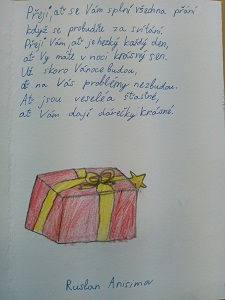 Přeji, ať se Vám splní všechna přání
když se probudíte za svítání.
Přeji Vám, ať je hezký každý den,
ať Vy máte v noci krásný sen.
Už skoro Vánoce budou,
ať na Vás problémy nezbudou.
Ať jsou veselé a šťastné,
ať Vám dají dárečky krásné.
Ruslan Anisimov